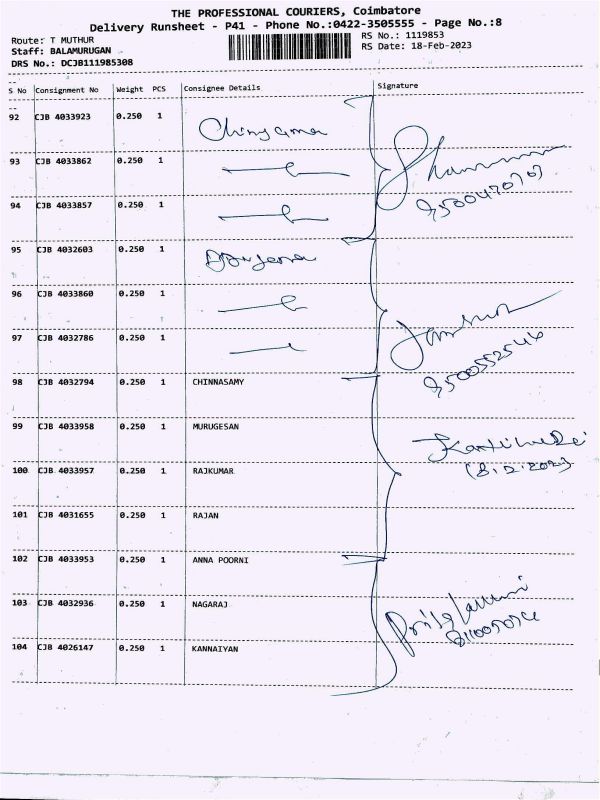 THE PROFESSIONAL COURIERS, Coimbatore
Delivery Runsheet - P41 - Phone No.:0422-3505555 - Page No.:8
Route: T MUTHUR RS No.: 1119853
Staff: BALAMURUGAN RS Date: 18-Feb-2023
DRS No.: DCJB111985308
S No Consignment No Weight PCS Consignee Details Signature
92 CJB 4033923 0.250 1
93 CJB 4033862 0.250 1
94 CJB 4033857 0.250 1
95 CJB 4032603 0.250 1
96 CJB 4033860 0.250 1
97 CJB 4032786 0.250 1
9500552546
98 CJB 4032794 0.250 1 CHINNASAMY
99 CJB 4033958 0.250 1 MURUGESAN
18.2.2023
100 CJB 4033957 0.250 1 RAJKUMAR
101 CJB 4031655 0.250 1 RAJAN
102 CJB 4033953 0.250 1 ANNA POORNI
103 CJB 4032936 0.250 1 NAGARAJ
104 CJB 4026147 0.250 1 KANNAIYAN